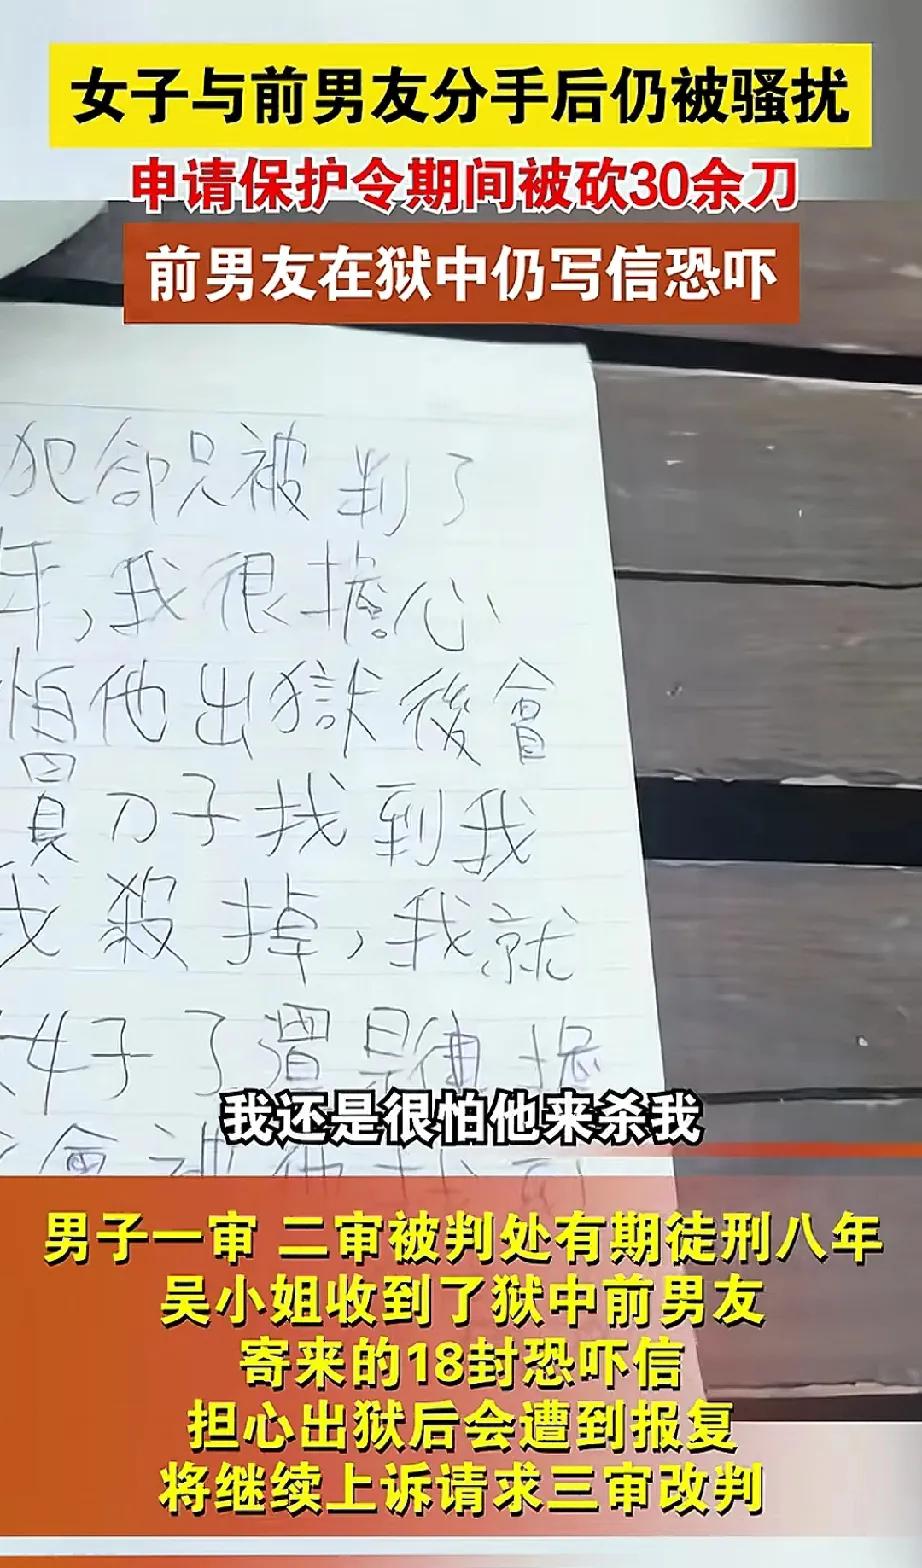 女子与前男友分手后仍被骚扰
申请保护令期间被砍30余刀
前男友在狱中仍写信恐吓
犯卻只被判了
年,我很擔心
怕他出獄後會
買刀子找到我
我殺掉,我就
女子了還是很擔
我还是很怕他来杀我
會被他
男子一审 二审被判处有期徒刑八年
吴小姐收到了狱中前男友
寄来的18封恐吓信
担心出狱后会遭到报复
将继续上诉请求三审改判